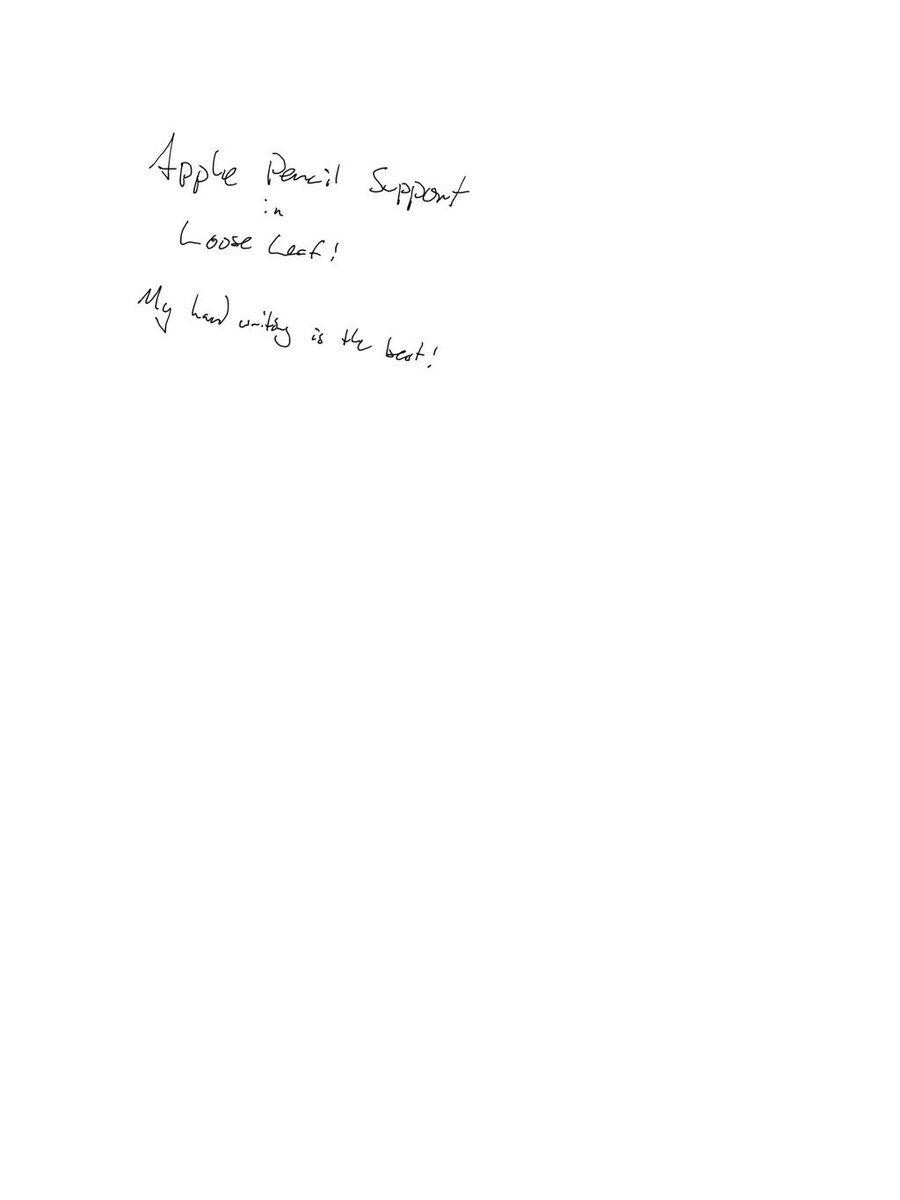 Apple Pencil Support
in
Loose Leaf!
My hand writing is the best!